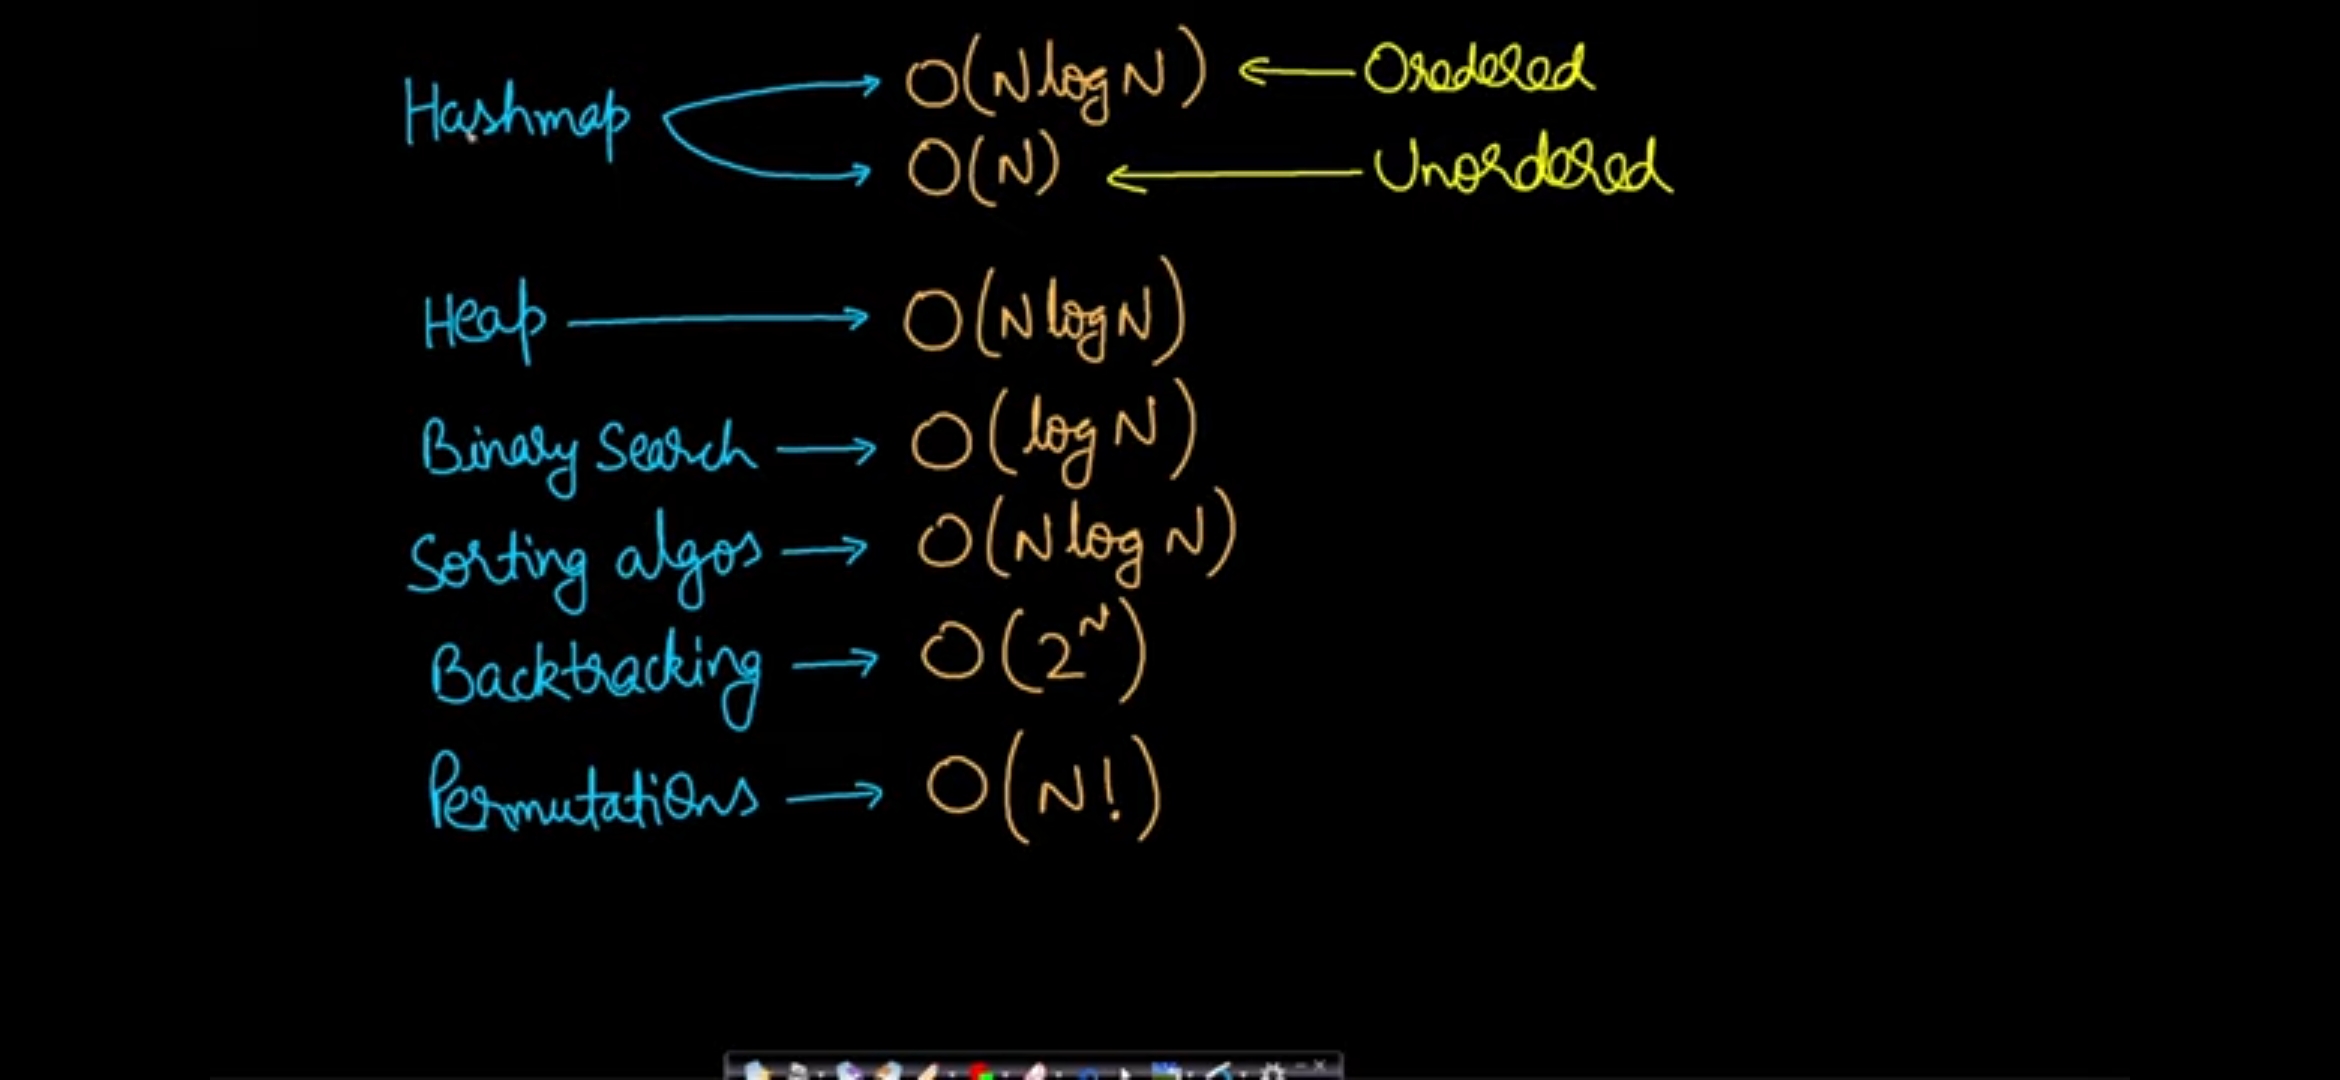 Hashmap
O(N log N) ← Oredered
O(N) ← Unordered
Heap → O(N log N)
Binary Search → O(log N)
Sorting algos → O(N log N)
Backtracking → O(2^N)
Permutations → O(N!)